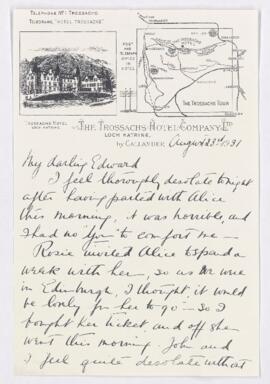 TELEPHONE No 1 TROSSACHS.
TELEGRAMS, "HOTEL TROSSACHS"
POST AND TELEGRAPH OFFICE IN HOTEL
THE TROSSACHS TOUR
TROSSACHS HOTEL
LOCH KATRINE.
THE TROSSACHS HOTEL COMPANY LTD
LOCH KATRINE,
by CALLANDER August 23rd 1931
My darling Edward
I feel thoroughly desolate tonight
after having parted with Alice
this morning, it was horrible, and
I had no 'you' to comfort me —
Rosie invited Alice to spend a
week with her, so as we were
in Edinburgh, I thought it would
be lonly for her to go — so I
bought her ticket, and off she
went this morning. John and
I feel quite desolate without